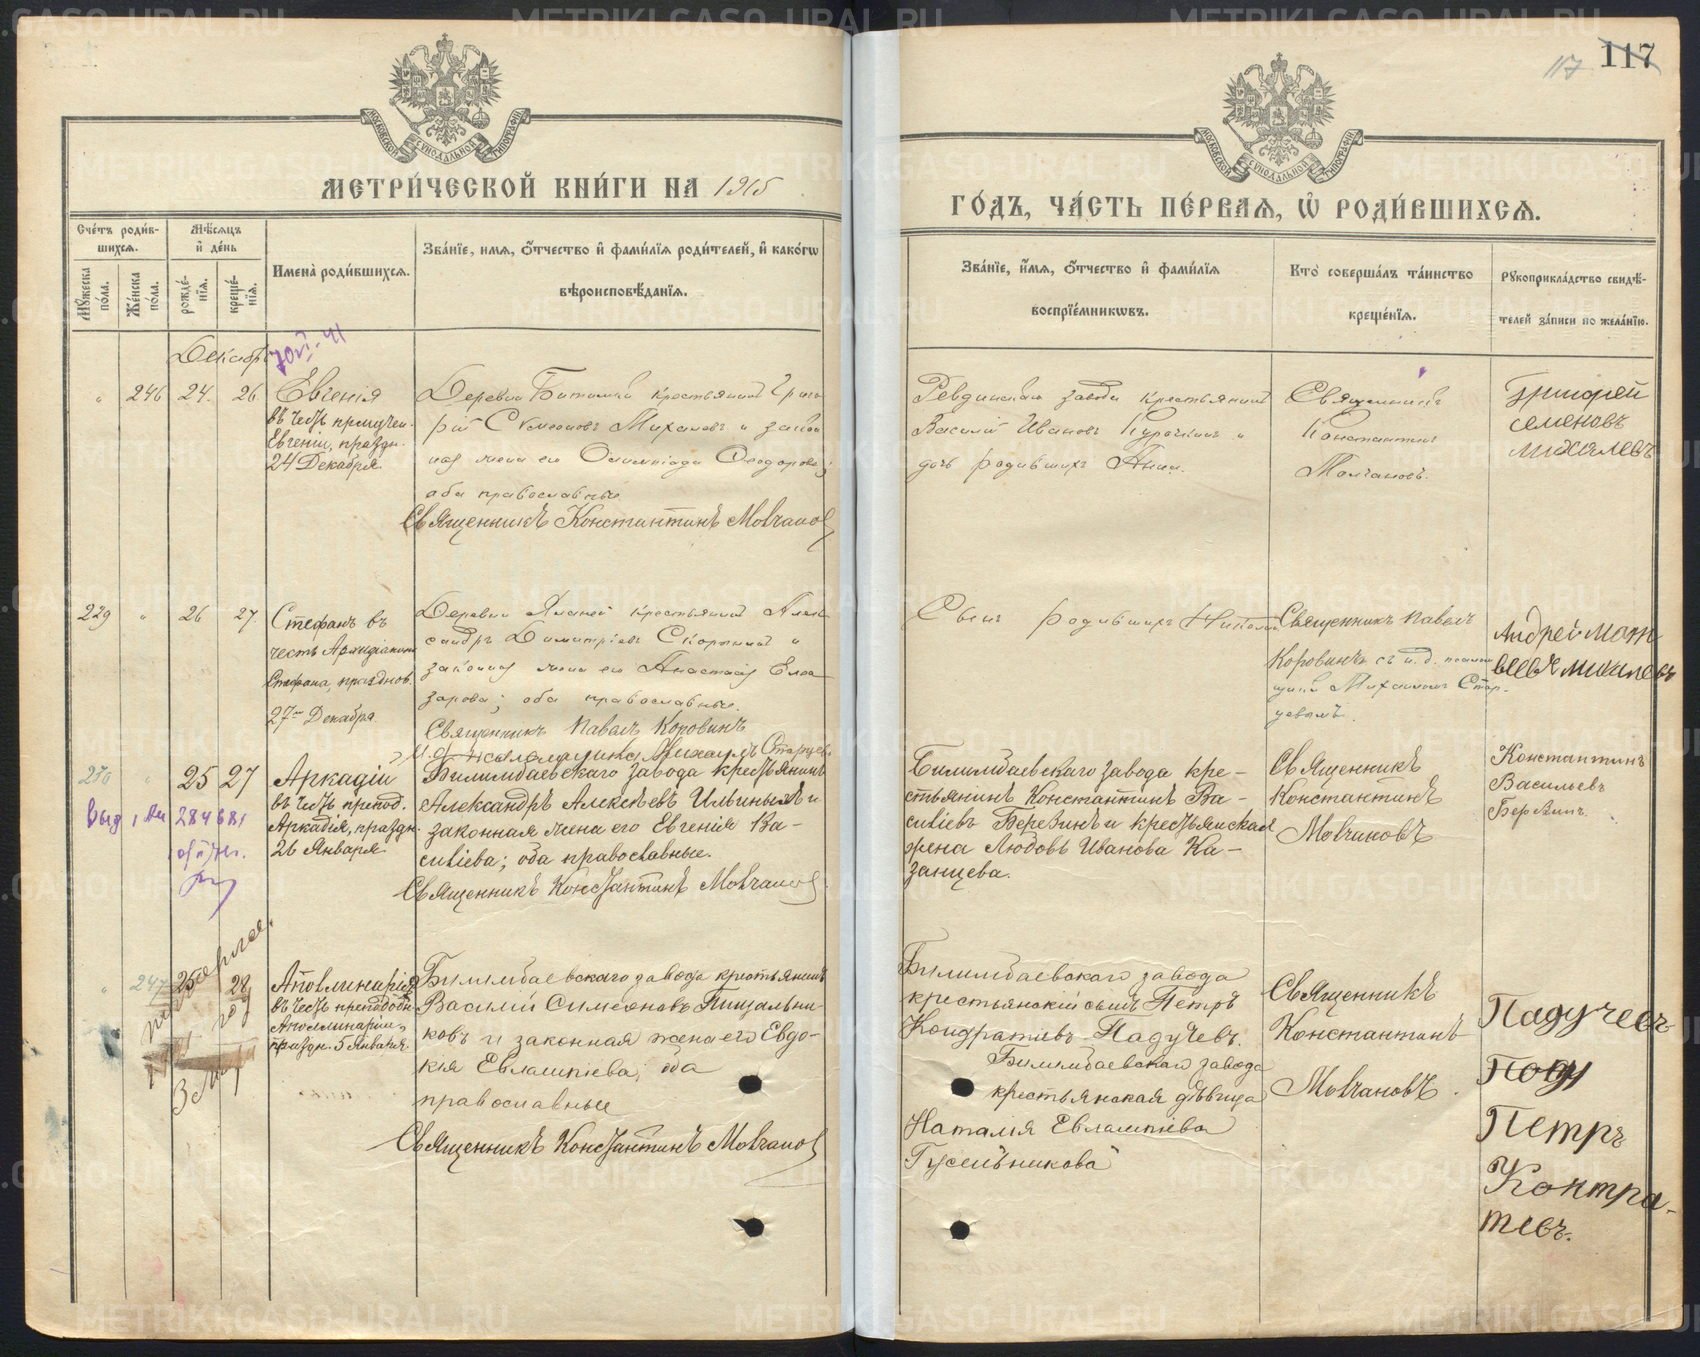 117
117
МОСКОВСКОЙ СѴНОДАЛЬНОЙ ТИПОГРАФІИ
МОСКОВСКОЙ СѴНОДАЛЬНОЙ ТИПОГРАФІИ
МЕТРИ́ЧЕСКОЙ КНИ́ГИ НА 1915
ГО́ДЪ, ЧА́СТЬ ПЕ́РВАѦ, Ѡ҆ РОДИ́ВШИХСѦ.
Сче́тъ роди́в-
шихсѧ.
Мꙋ́жеска
по́ла.
Же́нска
по́ла.
Мѣ́сѧцъ
и҆ де́нь
рожде́-
нїѧ.
креще́-
нїѧ.
Имена̀ роди́вшихсѧ.
Зва́нїе, имѧ, ѻ҆́тчество и҆ фами́лїѧ роди́телей, и҆ како́гѡ
вѣроисповѣ́данїѧ.
Зва́нїе, и҆́мѧ, ѻ҆́тчество и҆ фами́лїѧ
воспрїе́мникѡвъ.
Кто̀ соверша́лъ та́инство
креще́нїѧ.
Рꙋкоприкла́дство свидѣ́-
телей за́писи по жела́нїю.
Декабрь
" 246 24. 26
Евгенія
въ честь прмучен.
Евгеніи, праздн.
24 Декабря.
Деревни Битимки крестьянинъ Григо-
рій Симеоновъ Михалевъ и закон-
ная жена его Олимпіада Ѳеодорова;
оба православные
Священникъ Константинъ Молчановъ
Ревдинскаго завода крестьянинъ
Василій Ивановъ Курочкинъ и
дочь родившихъ Анна.
Священникъ
Константинъ
Молчановъ.
Григорей
семеновъ
михалевъ
229 " 26 27.
Стефанъ въ
честь Архидіакона
Стефана, празднов.
27го Декабря.
Деревни крестьянинъ Алек-
сандръ Димитріевъ Скорынинъ и
законная жена его Анастасія Елеа-
зарова; оба православные.
Священникъ Павелъ Коровинъ
И. д. псаломщика Михаилъ Старцевъ
Сынъ родившихъ Николай
Священникъ Павелъ
Коровинъ съ и. д. псалом-
щика Михаиломъ Стар-
цевымъ.
Андрей мат
веевъ михалевъ
230 " 25 27
Аркадіи
въ честь препод.
Аркадія, праздн.
26 Января.
Билимбаевскаго завода крестьянинъ
Александръ Алексѣевъ Ильиныхъ и
законная жена его Евгенія Ва-
силіева; оба православные.
Священникъ Константинъ Молчановъ
Билимбаевскаго завода кре-
стьянинъ Константинъ Ва-
силіевъ Березинъ и крестьянская
жена Любовь Иванова Ка-
занцева.
Священникъ
Константинъ
Молчановъ
Константинъ
Васильевъ
Березинъ.
" 247 25 28
Аполлинарія
въ честь преподобн.
Аполлинаріи,
праздн. 5 Января.
Билимбаевскаго завода крестьянинъ
Василій Симеоновъ Пищальни-
ковъ и законная жена его Евдо-
кія Евлампіева; оба
православные
Священникъ Константинъ Молчановъ
Билимбаевскаго завода
крестьянскій сынъ Петръ
Кондратіевъ Падучевъ.
Билимбаевскаго завода
крестьянская дѣвица
Наталія Евлампіева
Гусельникова
Священникъ
Константинъ
Молчановъ.
Падучевъ
Поду
Петръ
Контра-
тевъ.